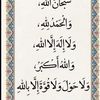 سُبْحَانَ اللهِ،
وَالْحَمْدُ لِلّٰهِ،
وَلَا إِلٰهَ إِلَّا اللهُ،
وَاللهُ أَكْبَرُ،
وَلَا حَوْلَ وَلَا قُوَّةَ إِلَّا بِاللهِ